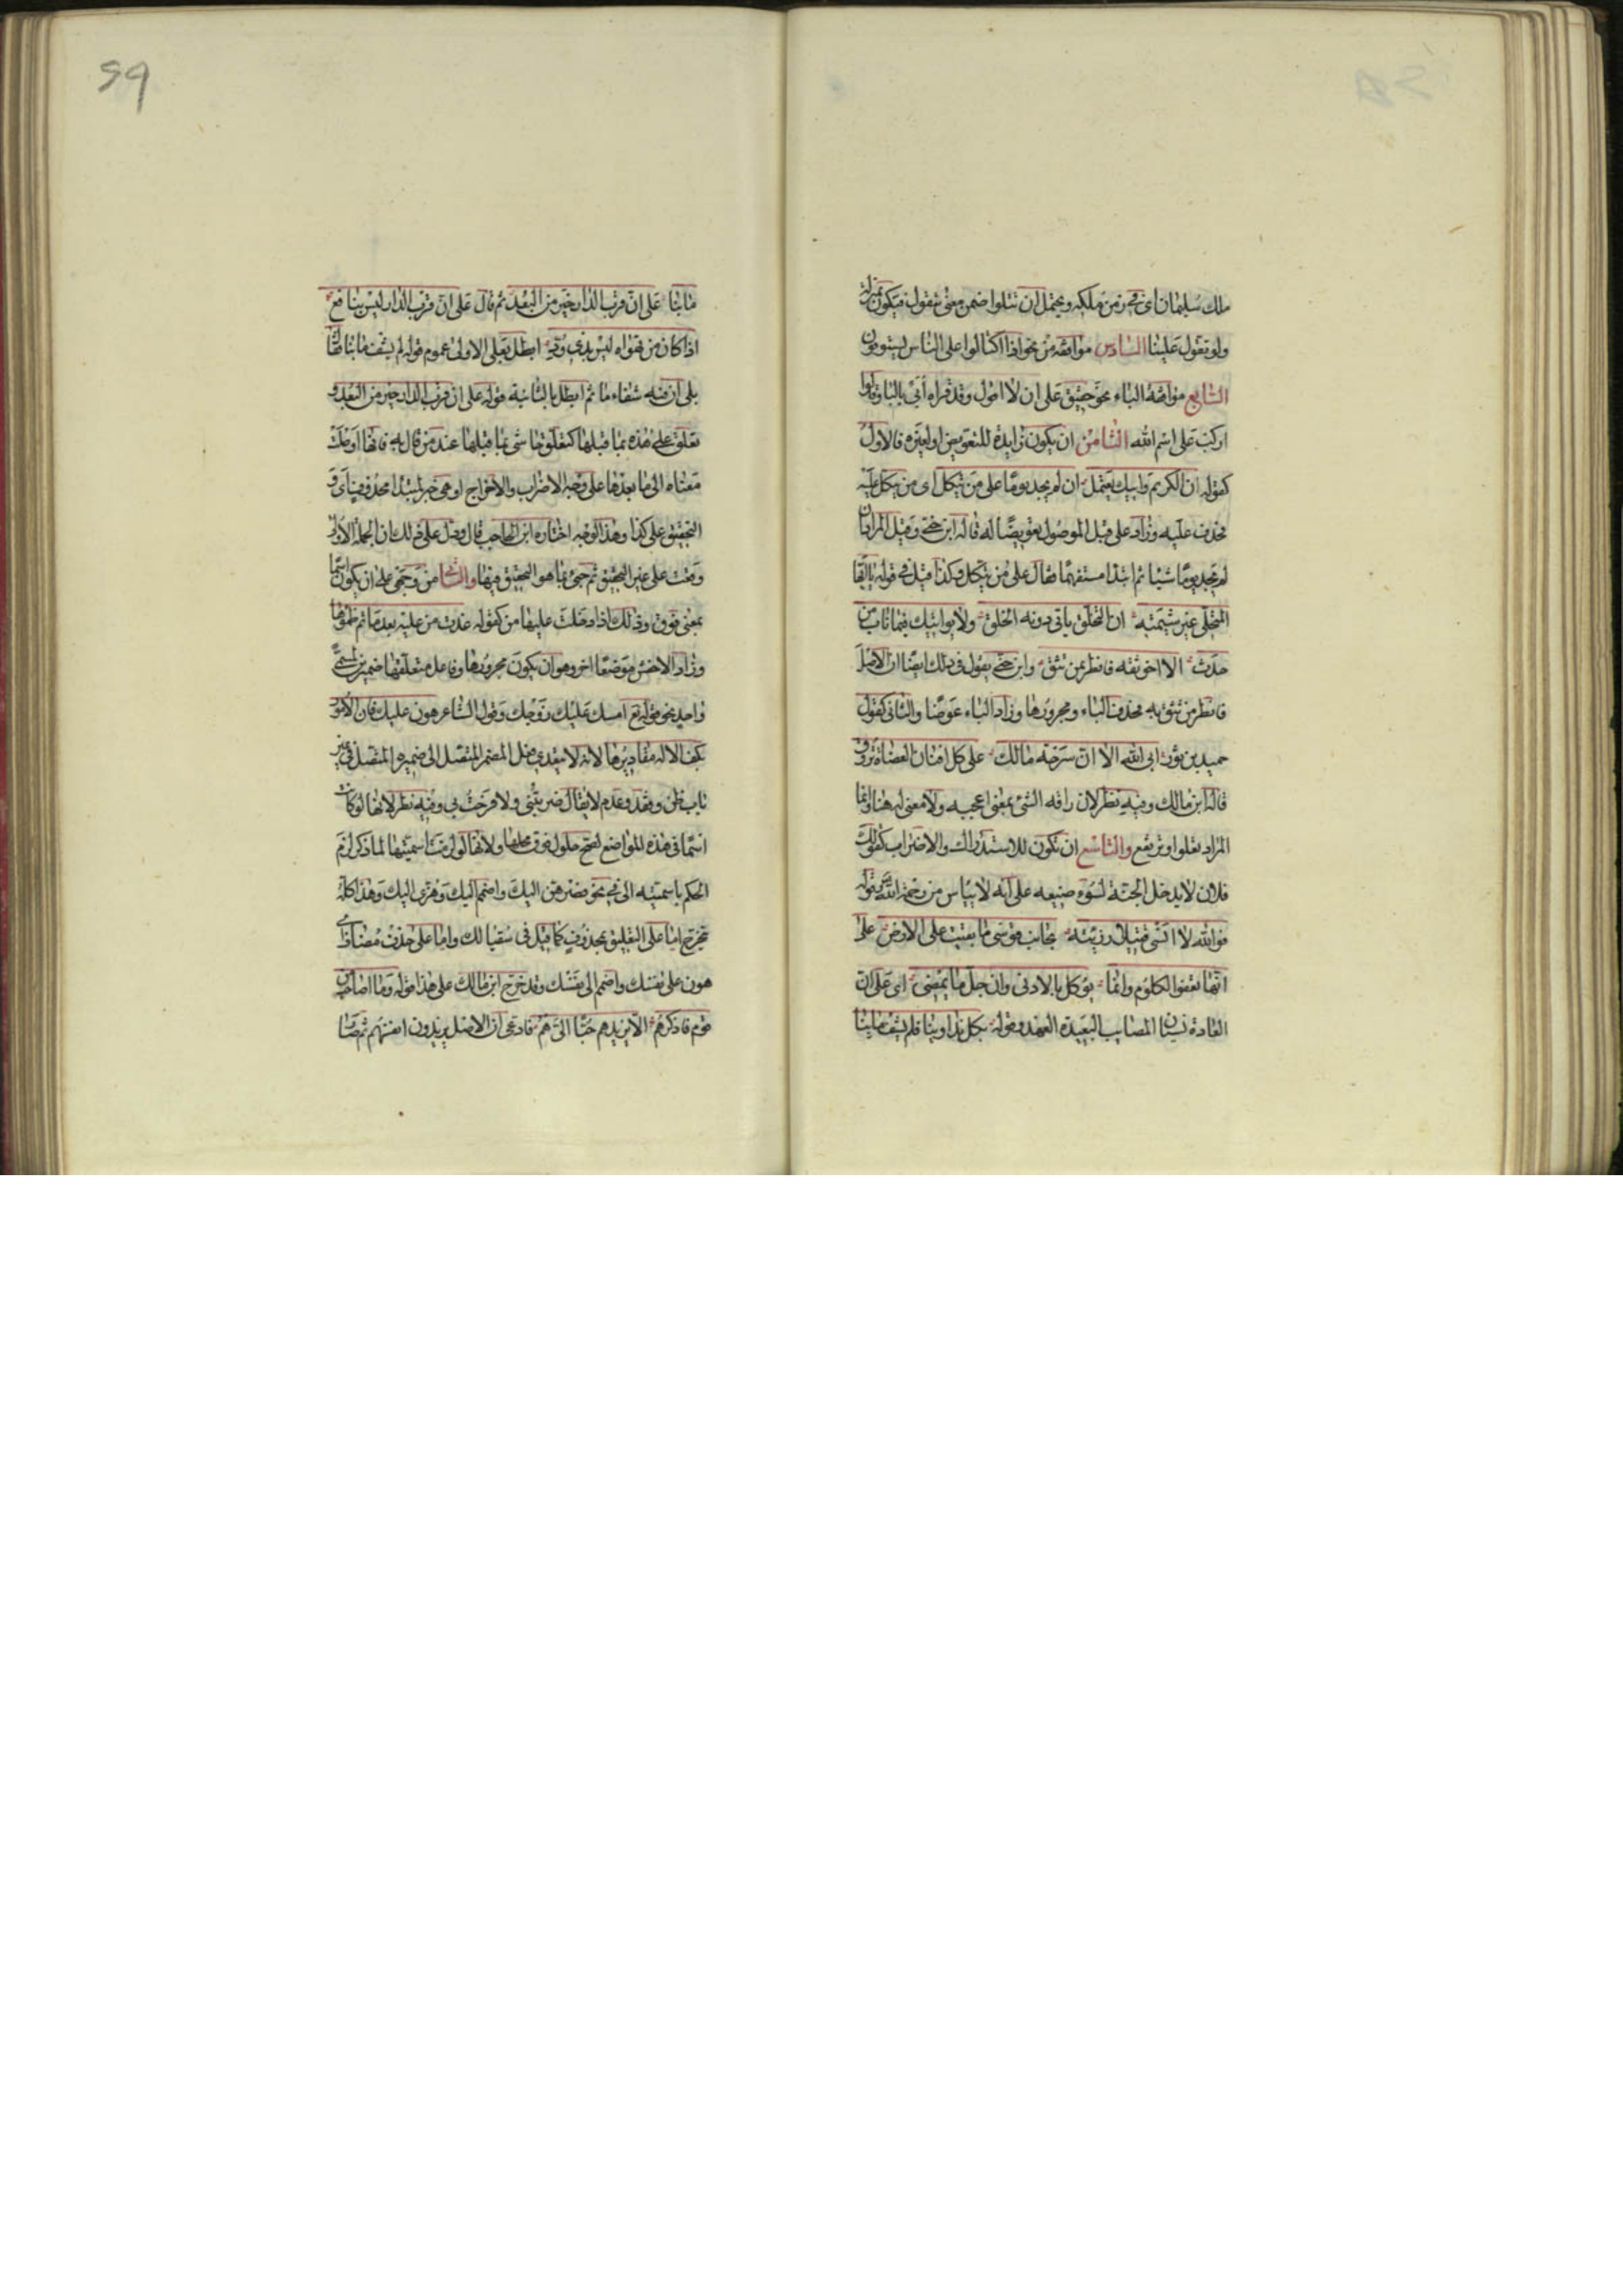 ملك سليمان اى فى زمن ملكه ويحتمل ان تتلوا ضمن معنى تتقول فيكون بمنزلة
ولو تقول علينا السادس موافقة من نحو اذا اكتالوا على الناس يستوفون
السابع موافقة الباء نحو حقيق على ان لا اقول وقد قراه أُبَيّ بالبا وقالوا
اركب على اسم الله الثامن ان يكون زايدة للتعويض او لغيره فالاول
كقوله ان الكريم وابيك يعتمل ان لم يجد يومًا على من يتكل اى من يتكل عليه
فحذف عليه وزاد على قبل الموصول تعويضًا له قاله ابن جنى وقيل المراد ان
لم يجد يومًا شيئا ثم ابتدا مستفهمًا فقال على من يتكل وكذا قيل فى قوله
المتحلى غير شيمته ان التخلق ياتى دونه الخلق ولا يواتيك فيما ناب من
حدث الا اخو ثقه فانظر بمن تثق وابن جنى يقول فى ذلك ايضًا ان الاصل
فانظر من تثق به فحذف الباء ومجرورها وزاد الباء عوضًا والثانى كقول
حميد بن ثور ابى الله الا ان سرحة مالك على كل افنان العضاة تروق
قاله ابن مالك وفيه نظر لان راقه الشئ بمعنى اعجبه ولا معنى له هنا وانما
المراد تعلوا وترتفع والتاسع ان تكون للاستدراك والاضراب كقولك
فلان لا يدخل الجنة لسوء صنيعه على انه لا ييأس من رحمة الله وقوله
فوالله لا انسى قتيلا رزيته بجانب قوسى ما بقيت على الارض على
انها تعفوا الكلوم وانما نوكل بالادنى وان جل ما يمضى اى على ان
العادة نسيان المصايب البعيدة العهد وقوله بكل تداوينا فلم يشف ما بنا
59
ما بنا على ان قرب الدار خير من البعد ثم قال على ان قرب الدار ليس بنافع
اذا كان من تهواه ليس بذى ود ابطل بعلى الاولى عموم قوله لم يشف ما بنا فقال
بلى ان فيه شفاء ما ثم ابطل بالثانية قوله على ان قرب الدار خير من البعد و
تعلق على هذه بما قبلها كتعلق حاشى بما قبلها عند من قال به فانها اوصلت
معناه الى ما بعدها على وجه الاضراب والاخراج او هى خبر لمبتدا محذوف اى و
التحقيق على كذا وهذا الوجه اختاره ابن الحاجب قال ودل على ذلك ان الجملة الاولى
وقعت على غير التحقيق ثم جئ بما هو التحقيق فيها والثانى من وجهى على ان يكون اسمًا
بمعنى فوق وذلك اذا دخلت عليها من كقوله غدت من عليه بعد ما تم ظمؤها
وزاد الاخفش موضعًا اخر وهو ان يكون مجرورها وفاعل متعلقها ضميرين لمسمى
واحد نحو قوله تع امسك عليك زوجك وقول الشاعر هون عليك فان الامور
بكف الاله مقاديرها لانه لا يتعدى فعل المضمر المتصل الى ضميره المتصل فى غير
باب ظن وفقد وعدم لا يقال ضربتُنى ولا فرحتُ بى وفيه نظر لانها لو كانت
اسمًا فى هذه المواضع لصح حلول فوق محلها ولانها لو لزمت اسميتها لما ذكر لزم
الحكم باسمية الى فى نحو فصرهن اليك واضمم اليك وهزى اليك وهذا كله
يتخرج اما على التعليق بمحذوف كما قيل فى سقيا لك واما على حذف مضاف اى
هون على نفسك واضمم الى نفسك وقد خرج ابن مالك على هذا قوله وما اصاحب
قوم فاذكرهم الا يزيدهم حبًّا الىّ هم فادعى ان الاصل يزيدون انفسهم ثم صار